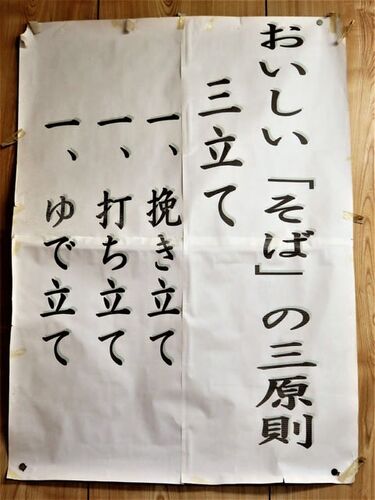 おいしい「そば」の三原則
三立て
一、挽き立て
一、打ち立て
一、ゆで立て